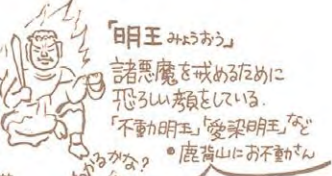 「明王みょうおう」
諸悪魔を戒めるために
恐ろしい顔をしている.
「不動明王」「愛染明王」など
•鹿背山にお不動さん
かるかな?